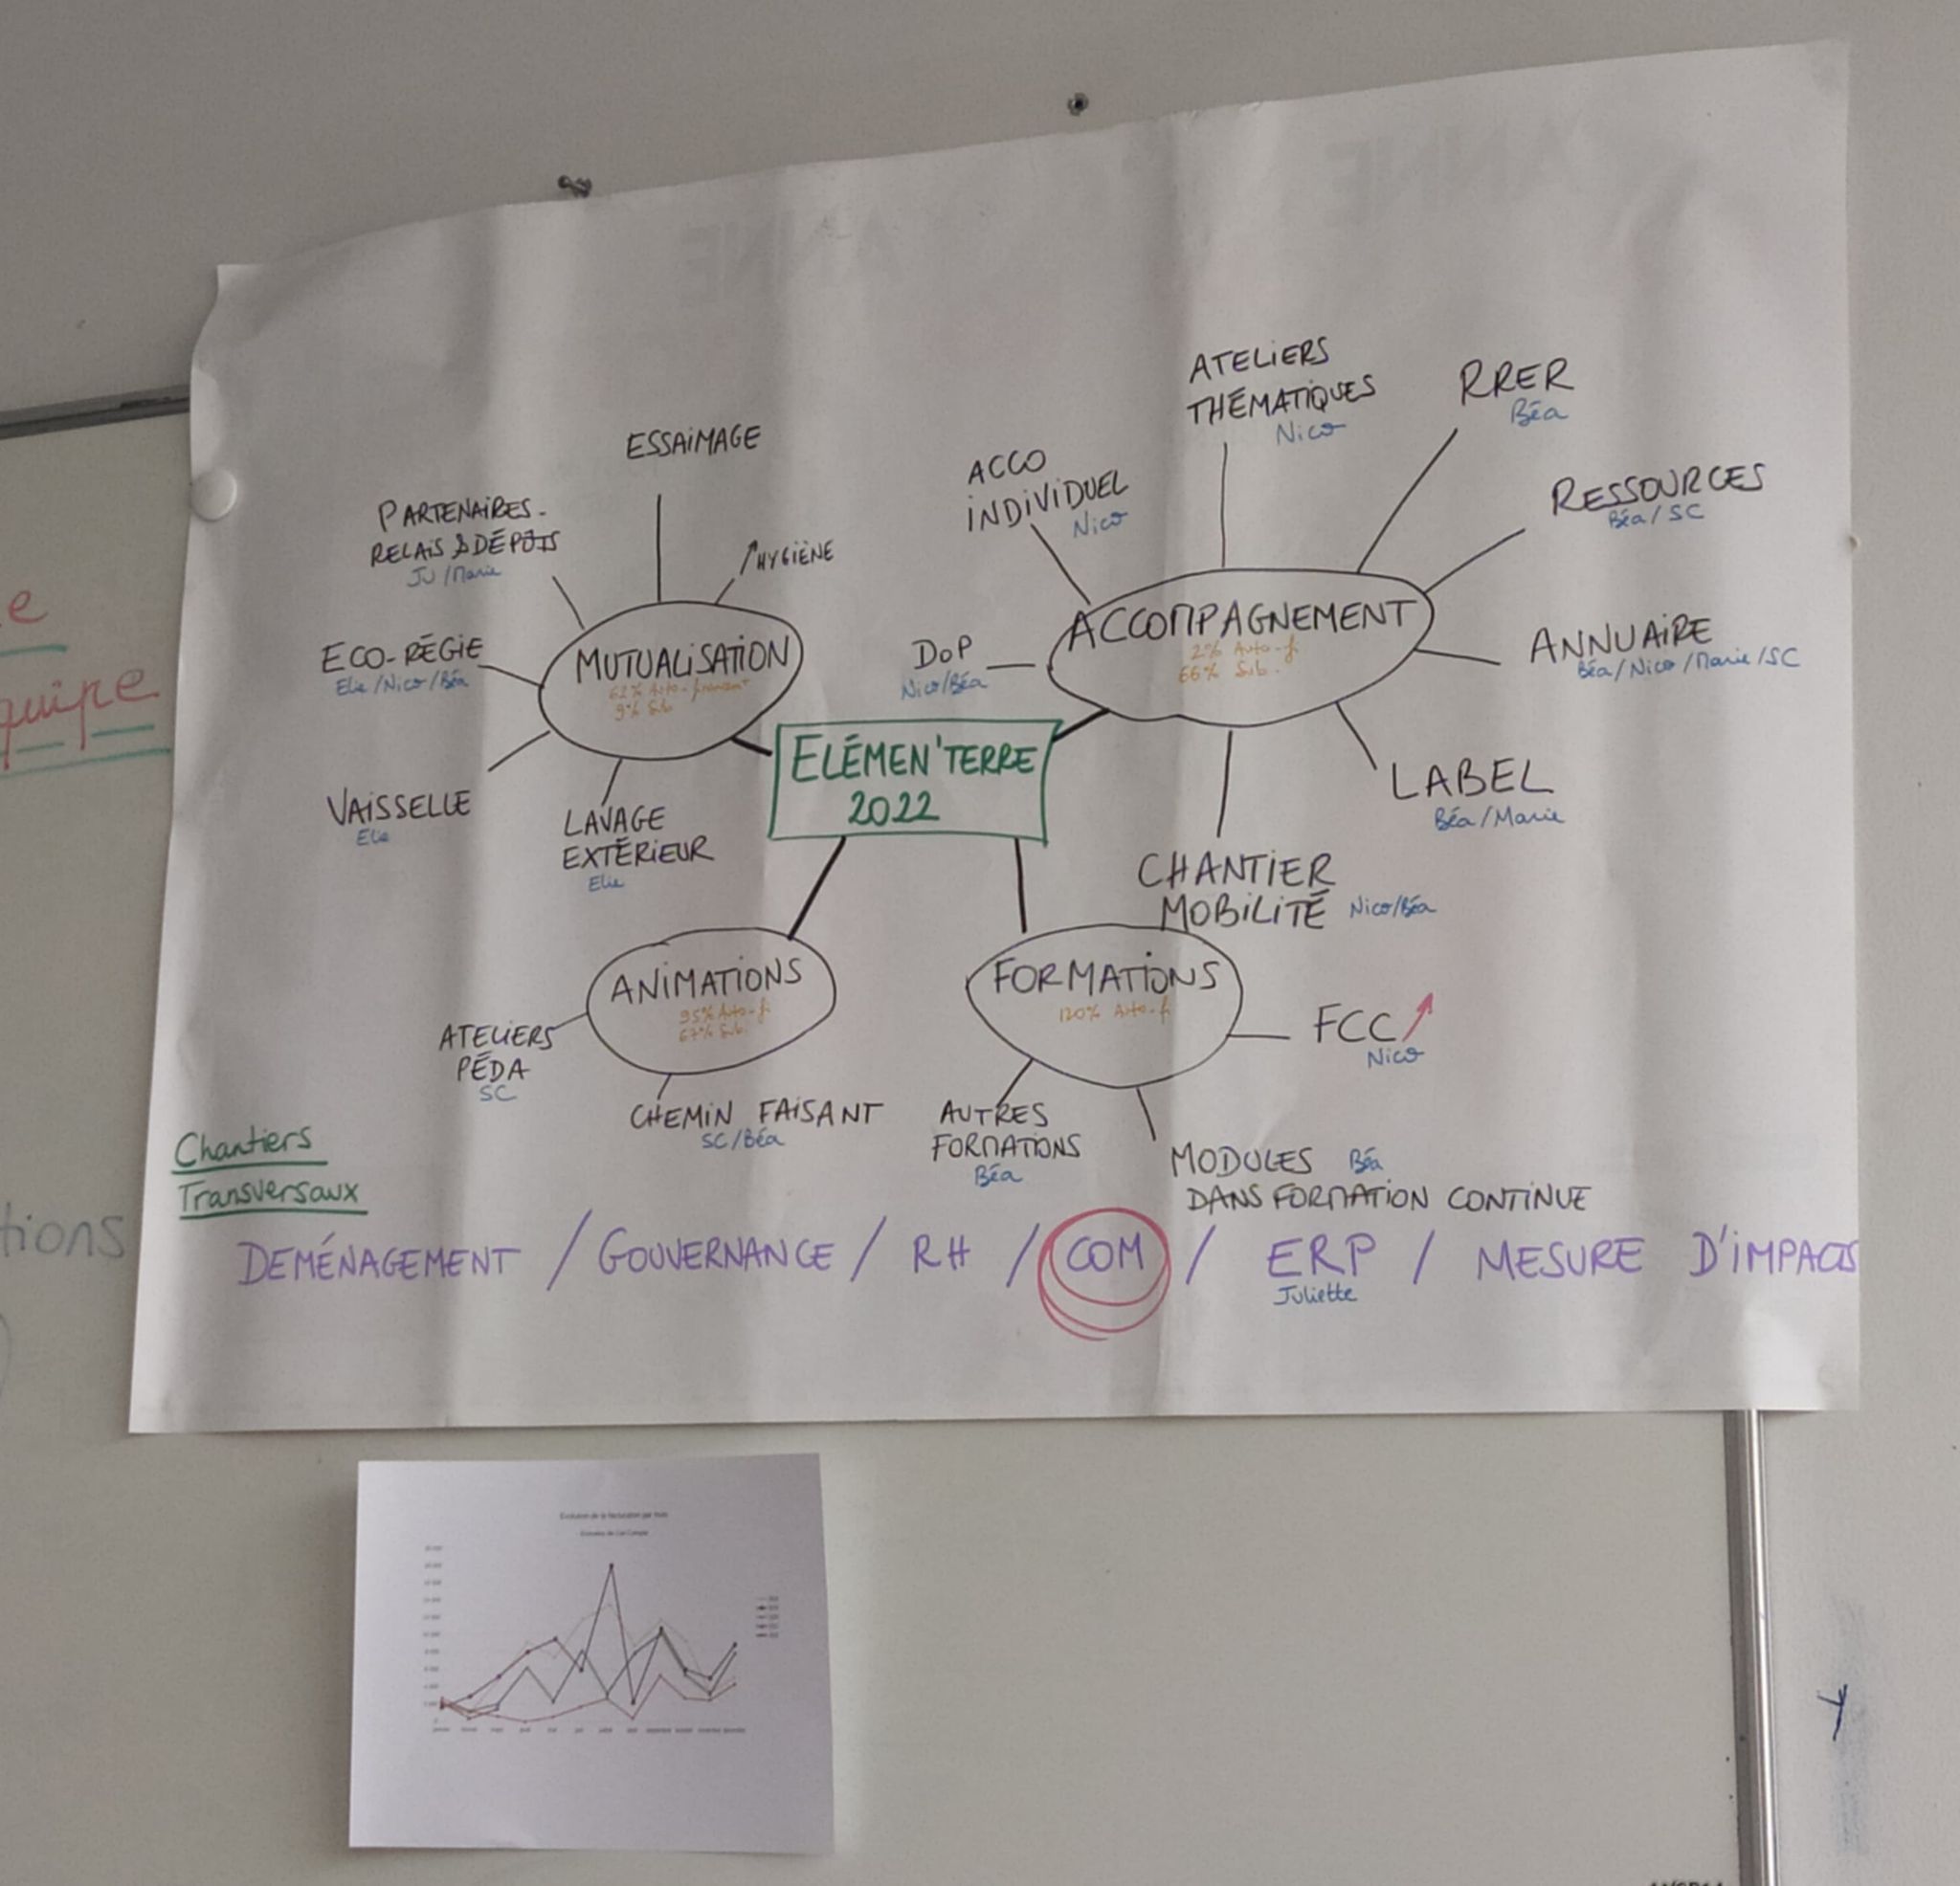 ESSAIMAGE
PARTENAIRES-
RELAIS & DÉPÔTS
Ju/Marie
HYGIÈNE
ECO-RÉGIE
Elie/Nico/Béa
MUTUALISATION
62% Auto-financemt
9% Sub
VAISSELLE
Elie
LAVAGE
EXTÉRIEUR
Elie
ACCO
INDIVIDUEL
Nico
ATELIERS
THÉMATIQUES
Nico
RRER
Béa
RESSOURCES
Béa/SC
ACCOMPAGNEMENT
2% Auto-fi
66% Sub.
DoP
Nico/Béa
ANNUAIRE
Béa/Nico/Marie/SC
LABEL
Béa/Marie
CHANTIER
MOBILITÉ Nico/Béa
ELÉMEN'TERRE
2022
ANIMATIONS
95% Auto-fi
67% Sub
ATELIERS
PÉDA
SC
CHEMIN FAISANT
SC/Béa
FORMATIONS
120% Auto-fi
FCC
Nico
AUTRES
FORMATIONS
Béa
MODULES Béa
DANS FORMATION CONTINUE
Chantiers
Transversaux
DEMÉNAGEMENT / GOUVERNANCE / RH / COM / ERP / MESURE D'IMPACTS
Juliette
e
quipe
tions
ANNE
ANNE
Evolution de la facturation par mois